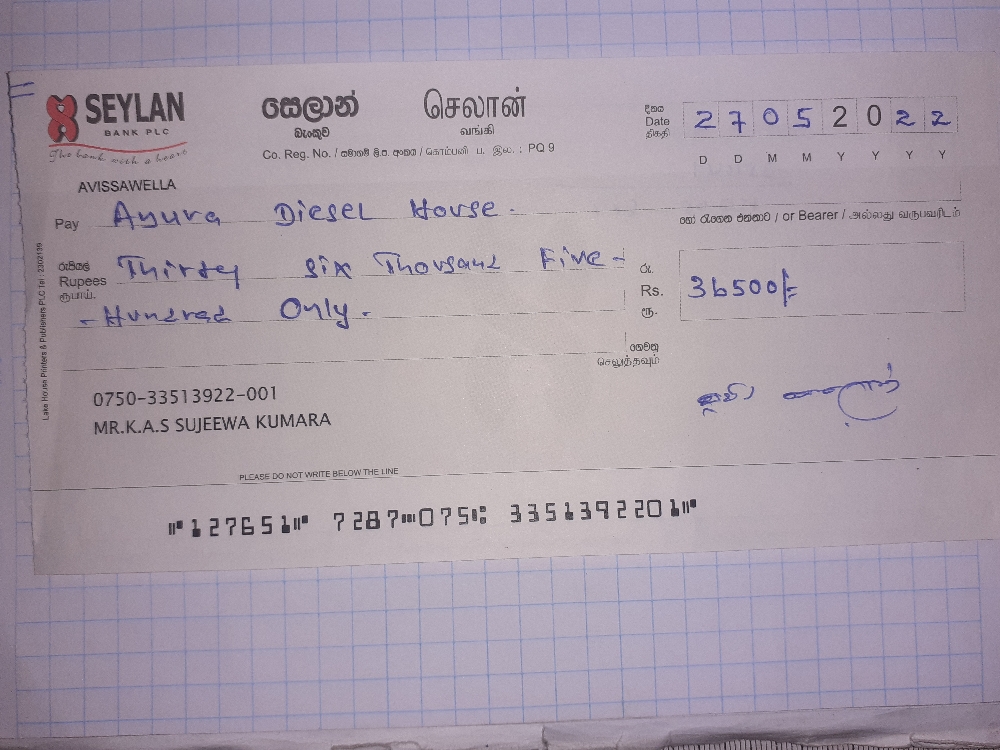 SEYLAN
BANK PLC
The bank with a heart
සෙලාන් බැංකුව
செலான் வங்கி
Co. Reg. No. / සමාගම් ලි.ප. අංකය / கொம்பனி ப. இல. : PQ 9
දිනය Date திகதி 27052022
D D M M Y Y Y Y
AVISSAWELLA
Pay Ayura Diesel House.
හෝ රැගෙන එනතාට / or Bearer / அல்லது வருபவரிடம்
රුපියල් Rupees ரூபாய். Thirtey six Thousand Five -
- Hundred Only.
රු. Rs. ரூ. 36500/-
ගෙවනු
செலுத்தவும்
0750-33513922-001
MR.K.A.S SUJEEWA KUMARA
PLEASE DO NOT WRITE BELOW THE LINE
⑈127651⑈ 7287⑉075⑆ 335139220 1⑈
Lake House Printers & Publishers PLC Tel : 2302139